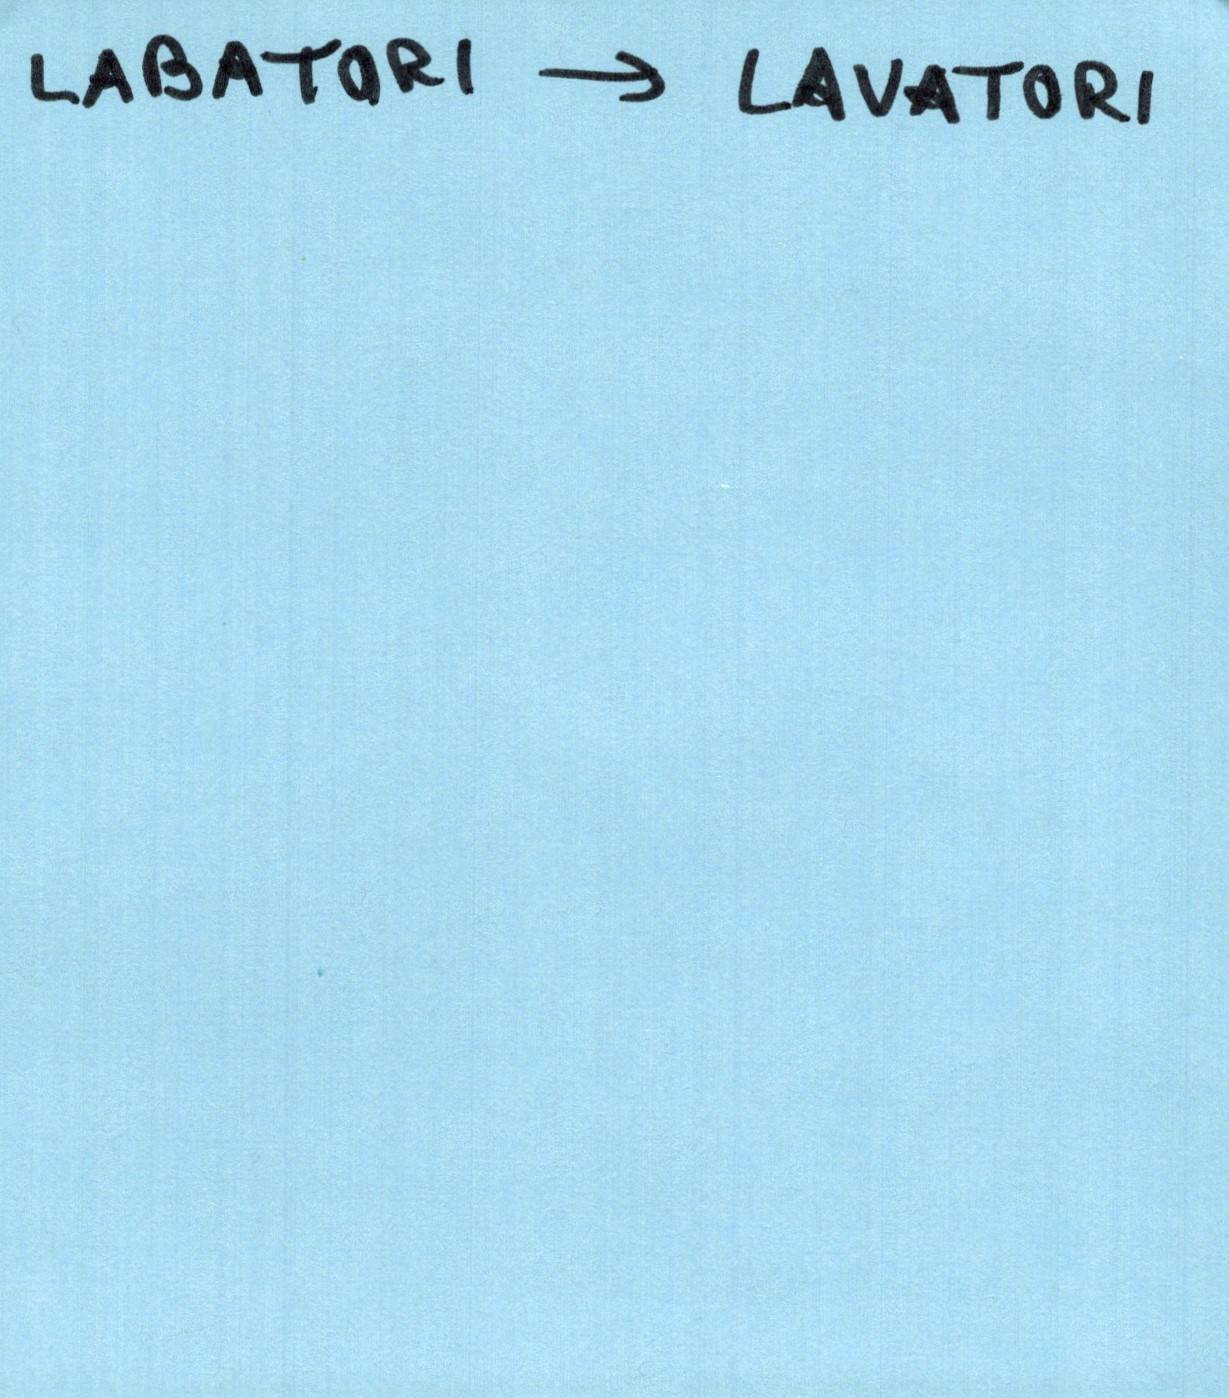 LABATORI → LAVATORI